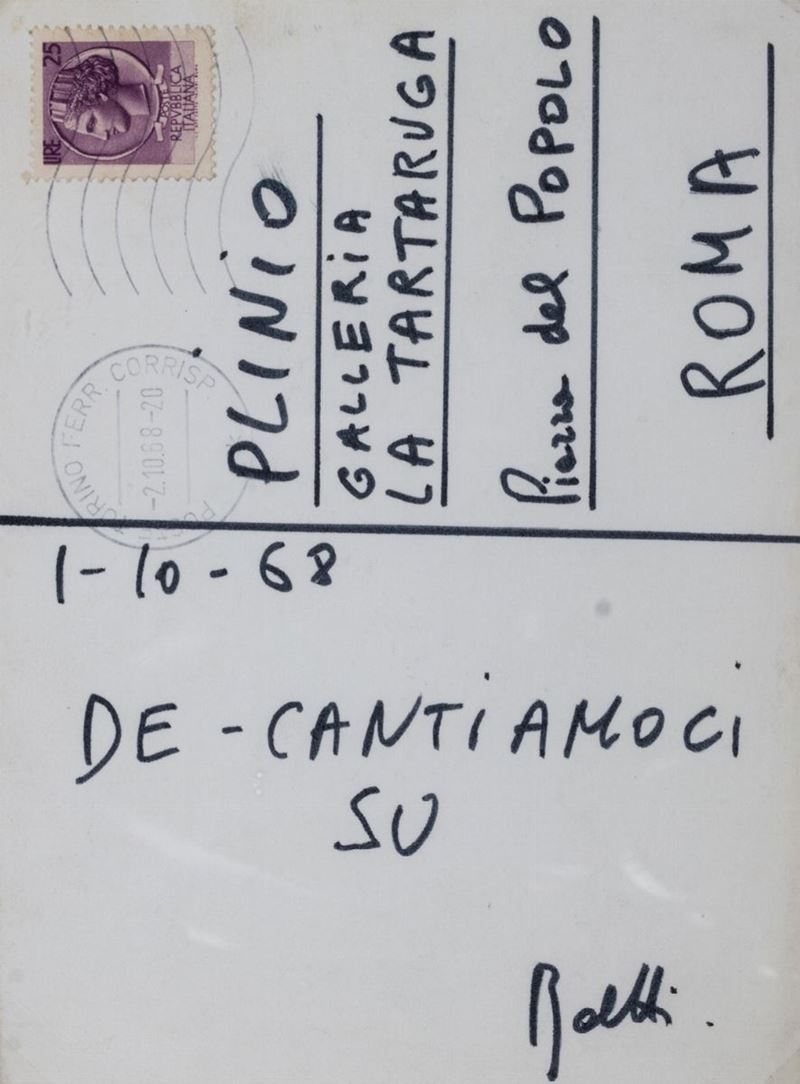 LIRE 25
POSTE
REPVBBLICA
ITALIANA
TORINO FERR. CORRISP.
-2.10.68-20
POSTE
PLINIO
GALLERIA
LA TARTARUGA
Piazza del POPOLO
ROMA
1-10-68
DE-CANTIAMOCI
SU
Boetti.